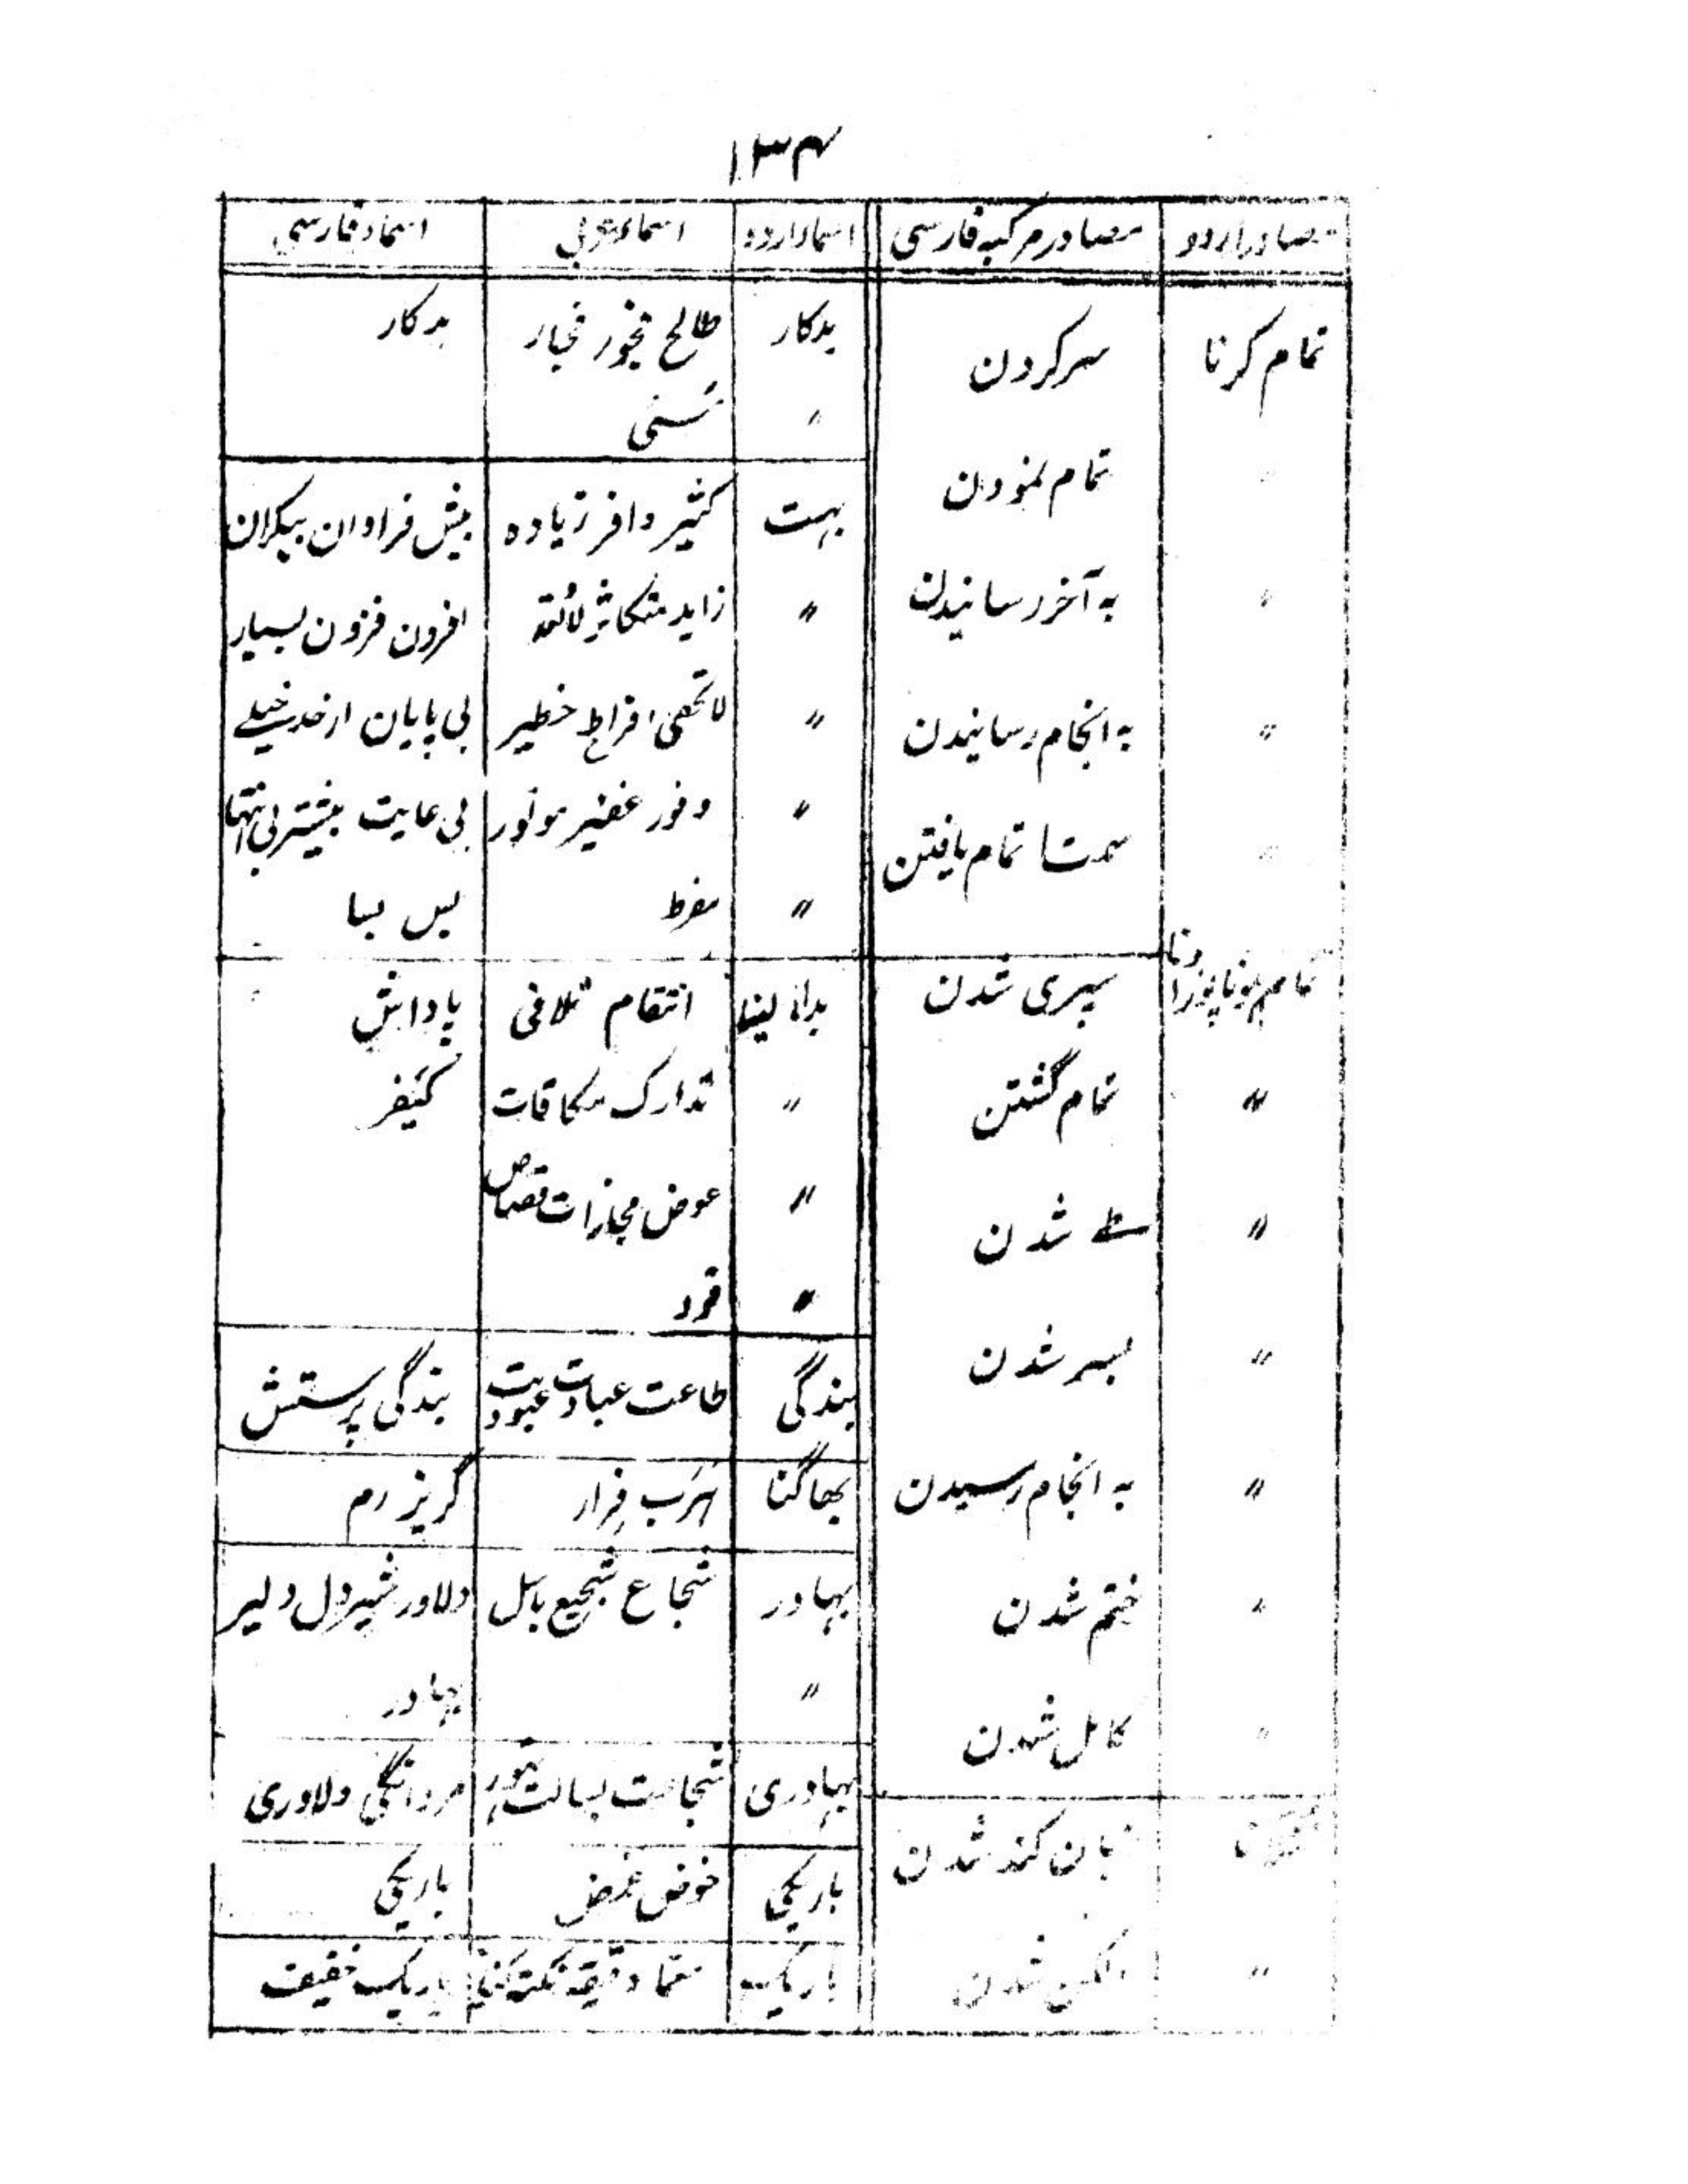 ۱۳۴
مصادر اردو | مصادر مرکبہ فارسی | اسماء اردو | اسماء عربی | اسماء فارسی
تمام کرنا | سر کردن | بدکار | طالح فجور فجار | بدکار
" |
" | تمام نمودن | بہت | کثیر وافر زیادہ | بیش فراوان بیکران
" | بہ آخر رسانیدن | " | زاید متکاثر | افزون فزون بسیار
" | بہ انجام رسانیدن | " | افراط خطیر | بی پایان از حد خیلے
" | تمام یافتن | " | وفور غفیر موفور | بی غایت بیشتر بی انتہا
" | مفرط | بس بسا
تمام ہونا پورا ہونا | سپری شدن | بدلا لینا | انتقام تلافی | پاداش
" | تمام گشتن | " | تدارک مکافات | کیفر
" | طے شدن | " | عوض مجازات قصاص
" | قود
" | بسر شدن | بندگی | طاعت عبادت عبودیت | بندگی پرستش
" | بہ انجام رسیدن | بھاگنا | ہرَب فِرار | گریز رم
" | ختم شدن | بہادر | شجاع شجیع باسل | دلاور شیردل دلیر
" | کامل شدن | " | بہادر
بہادری | شجاعت بسالت تہور | مردانگی دلاوری
زبان کند شدن | باریکی | غمض | باریکی
" | الکن شدن | باریک | معما دقیقہ نکتہ | باریک خفیف